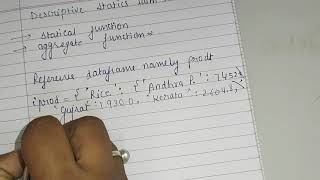 Descriptive statics
→ statical function
→ aggregate function
Reference dataframe namely prodt
prod = { 'Rice' : { 'Andhra P.' : 7452.
'Gujrat' : 1930.0, 'Kerala' : 2604.8,